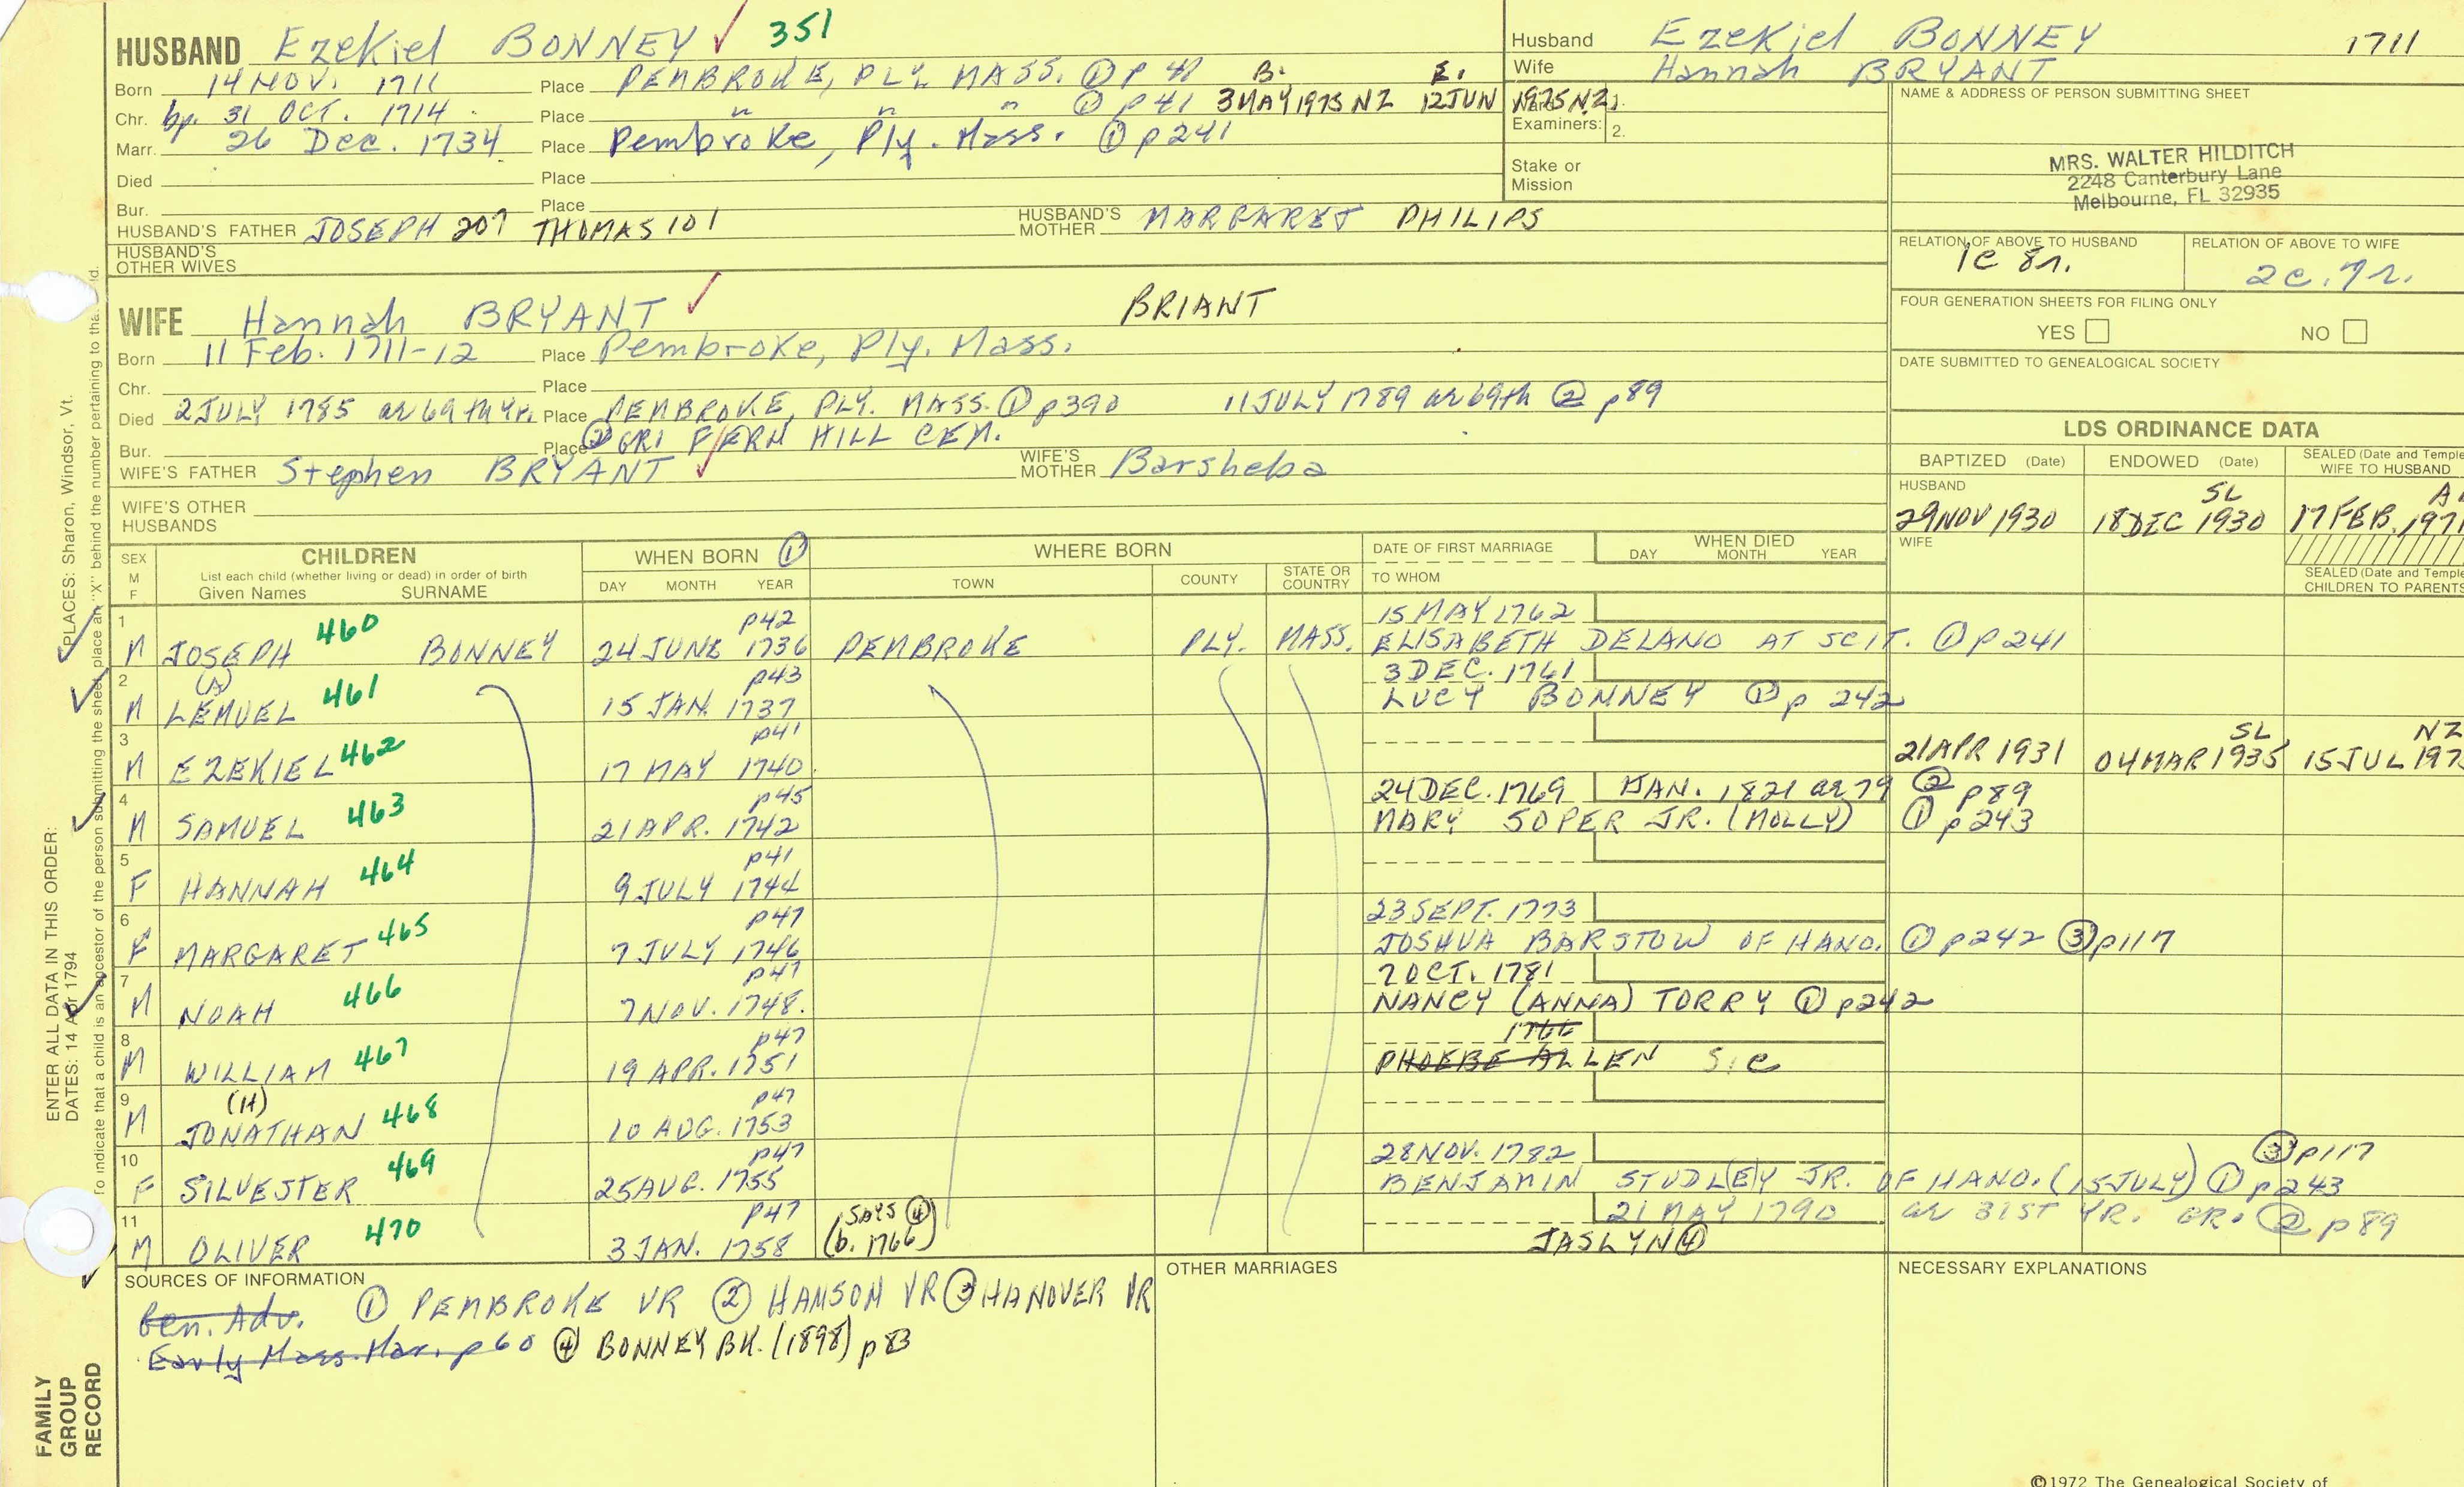 HUSBAND Ezekiel BONNEY ✓ 351
Born 14 NOV. 1711 Place PEMBROKE, PLY. MASS. ① p 41 B. E.
Chr. bp. 31 OCT. 1714 Place " " " ① p 41 3 MAY 1975 NZ 12 JUN 1975 NZ
Marr. 26 Dec. 1734 Place Pembroke, Ply. Mass. ① p 241
Died Place
Bur. Place
HUSBAND'S FATHER JOSEPH 207 THOMAS 101 HUSBAND'S MOTHER MARGARET PHILIPS
HUSBAND'S OTHER WIVES
WIFE Hannah BRYANT ✓ BRIANT
Born 11 Feb. 1711-12 Place Pembroke, Ply. Mass.
Chr. Place
Died 2 JULY 1785 ae 69th yr. Place PEMBROKE, PLY. MASS. ① p390 11 JULY 1789 ae 69th ② p89
Bur. Place ② GR1 FERN HILL CEM.
WIFE'S FATHER Stephen BRYANT ✓ WIFE'S MOTHER Barsheba
WIFE'S OTHER HUSBANDS
Husband Ezekiel BONNEY 1711
Wife Hannah BRYANT
Ward 1.
Examiners: 2.
Stake or Mission
NAME & ADDRESS OF PERSON SUBMITTING SHEET
MRS. WALTER HILDITCH
2248 Canterbury Lane
Melbourne, FL 32935
RELATION OF ABOVE TO HUSBAND RELATION OF ABOVE TO WIFE
1c 8r. 2c. 7r.
FOUR GENERATION SHEETS FOR FILING ONLY
YES NO
DATE SUBMITTED TO GENEALOGICAL SOCIETY
LDS ORDINANCE DATA
BAPTIZED (Date) ENDOWED (Date) SEALED (Date and Temple WIFE TO HUSBAND
HUSBAND SL
29 NOV 1930 18 DEC 1930 17 FEB. 197
WIFE
SEALED (Date and Temple
CHILDREN TO PARENTS
SEX M F CHILDREN WHEN BORN ① WHERE BORN DATE OF FIRST MARRIAGE WHEN DIED
List each child (whether living or dead) in order of birth DAY MONTH YEAR TOWN COUNTY STATE OR COUNTRY TO WHOM DAY MONTH YEAR
Given Names SURNAME
1 460 p42 15 MAY 1762
M JOSEPH BONNEY 24 JUNE 1736 PEMBROKE PLY. MASS. ELISABETH DELANO AT SCIT. ① p 241
2 461 p43 3 DEC. 1761
M LEMUEL 15 JAN. 1737 LUCY BONNEY ① p 242
3 462 p41 SL NZ
M EZEKIEL 17 MAY 1740 21 APR 1931 04 MAR 1935 15 JUL 197
4 463 p45 24 DEC. 1769 JAN. 1821 ae 79 ② p89
M SAMUEL 21 APR. 1742 MARY SOPER JR. (MOLLY) ① p243
5 464 p41
F HANNAH 9 JULY 1744
6 465 p47 23 SEPT. 1773
F MARGARET 7 JULY 1746 JOSHUA BARSTOW OF HANO. ① p242 ③ p117
7 466 p47 7 OCT. 1781
M NOAH 7 NOV. 1748. NANCY (ANNA) TORRY ① p242
8 467 p47 1766
M WILLIAM 19 APR. 1751 PHOEBE ALLEN
9 (H) 468 p47
M JONATHAN 10 AUG. 1753
10 469 p47 28 NOV. 1782 ③ p117
F SILVESTER 25 AUG. 1755 BENJAMIN STUDL(E)Y JR. OF HANO. (15 JULY) ① p243
11 470 p47 (SAYS ④ 21 MAY 1790 ae 31ST YR. GR. ② p89
M OLIVER 3 JAN. 1758 (b. 1766) JASLYN ④
SOURCES OF INFORMATION OTHER MARRIAGES NECESSARY EXPLANATIONS
Gen. Adv. ① PEMBROKE VR ② HANSON VR ③ HANOVER VR
Early Mass. Mar. p 60 ④ BONNEY BK. (1898) p 83
©1972 The Genealogical Society of
ENTER ALL DATA IN THIS ORDER:
DATES: 14 Apr 1794
PLACES: Sharon, Windsor, Vt.
To indicate that a child is an ancestor of the person submitting the sheet, place an "X" behind the number pertaining to that
FAMILY
GROUP
RECORD